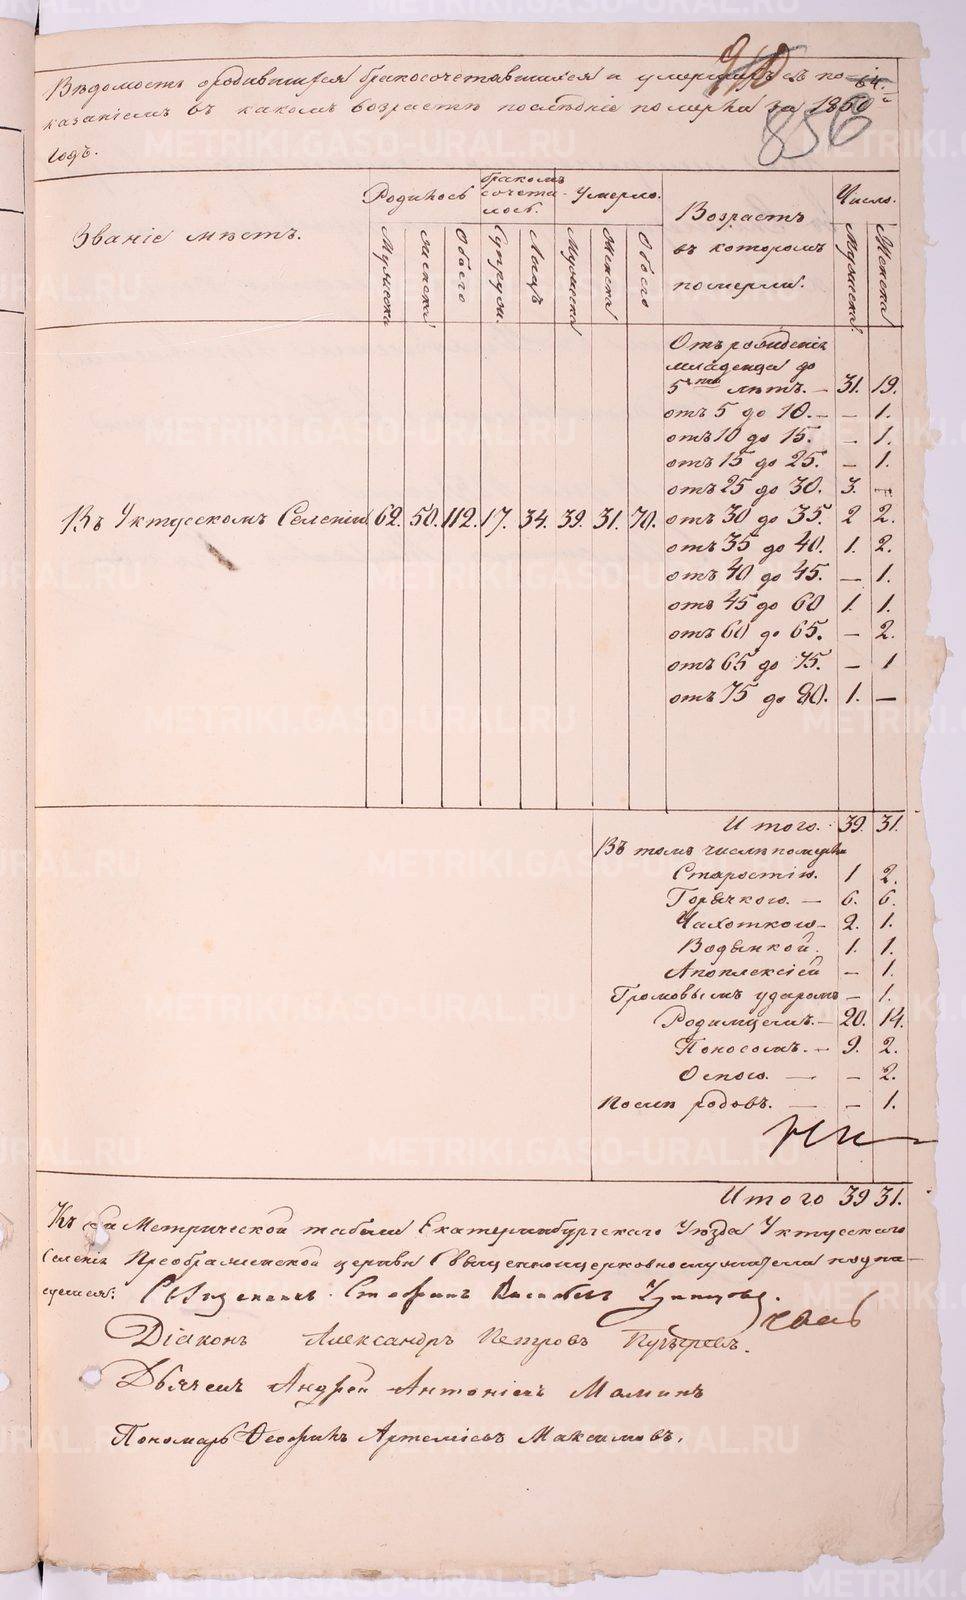 Вѣдомость о родившихся бракосочетавшихся и умершихъ съ по-
казаніемъ въ какомъ возрастѣ послѣдніе померли за 1860й
годъ.
64.
856
Званіе мѣстъ.
Родилось
бракомъ сочета- лось.
Умерло.
Возрастъ въ которомъ померли.
Число.
Мужеска
Женска
Обоего
Супруж.
Лицъ
Мужеска
Женска
Обоего
Мужеска.
Женска
Отъ рожденія
младенца до
5ти лѣтъ. — 31. 19.
отъ 5 до 10. — – 1.
отъ 10 до 15. – 1.
отъ 15 до 25. – 1.
отъ 25 до 30. 3. –
Въ Уктусскомъ Селеніи 62. 50. 112. 17. 34. 39. 31. 70. отъ 30 до 35. 2 2.
отъ 35 до 40. 1. 2.
отъ 40 до 45. — 1.
отъ 45 до 60 1. 1.
отъ 60 до 65. – 2.
отъ 65 до 75. – 1
отъ 75 до 80. 1. —
Итого. 39. 31.
Въ томъ числѣ померли
Старостію. 1 2.
Горячкою. — 6. 6.
Чахоткою – 2. 1.
Водянкой. 1. 1.
Апоплексіей – 1.
Громовымъ ударомъ – 1.
Родимцемъ. – 20. 14.
Поносомъ. – 9. 2.
Оспою. — – 2.
Послѣ родовъ. — – 1.
Итого 39 31.
Къ сей Метрической табели Екатеринбургскаго Уѣзда Уктусскаго
Селенія Преображенской церкви Священноцерковнослужители подпи-
суемся: Священникъ Стефанъ
Діаконъ Александръ Петровъ
Дьячекъ Андрей Антоніевъ Маминъ
Пономарь Ѳеофилъ Артеміевъ Максимовъ.
METRIKI.GASO-URAL.RU